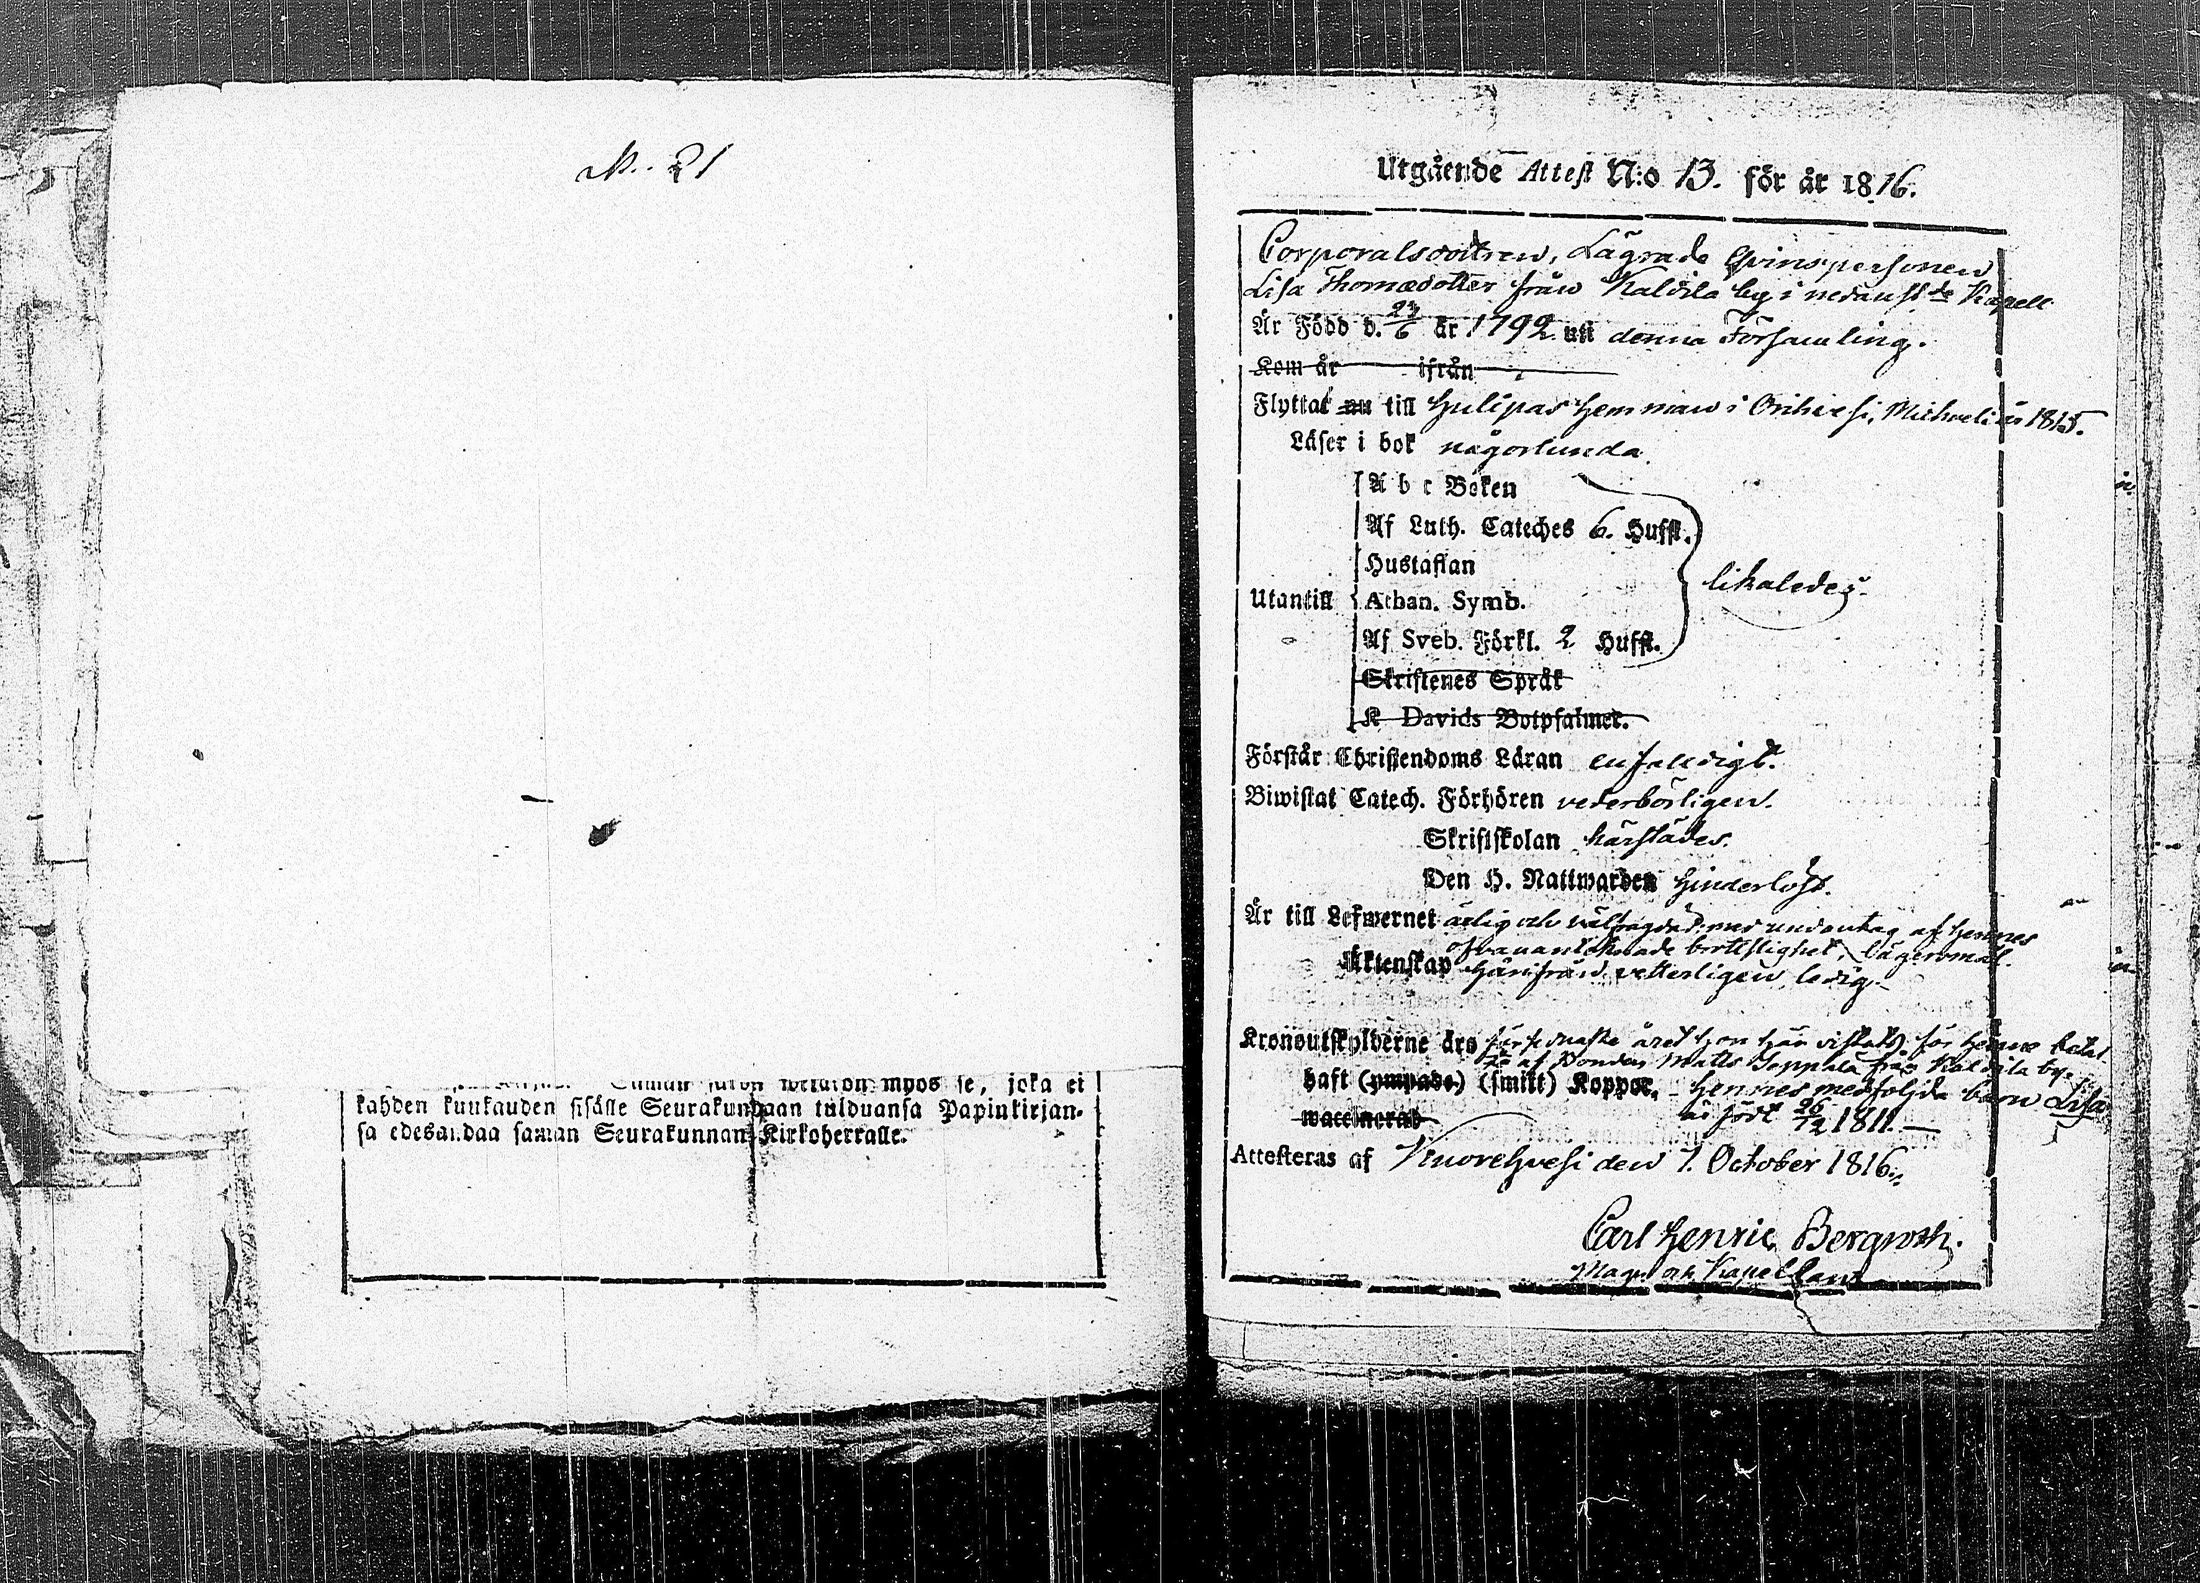 N. 21
kahden kuukauden sisälle Seurakundaan tulduansa Papinkirjan-
sa edesandaa saman Seurakunnan Kirkoherralle.
Utgående Attest N:o 13. för år 1816.
Corporalsdottren, Lägrade Qvinspersonen
Lisa Thomædotter från Kaldila by i nedanst.de Kapell
Är Född d. 24/6 år 1792 uti denna Församling.
Kom år ifrån
Flyttat nu till Hulipas Hemman i Orihvesi, Michaeli år 1815.
Läser i bok någorlunda.
A b c Boken
Af Luth. Cateches 6. Hufst.
Hustaflan
likaledes.
Utantill Athan. Symb.
Af Sveb. Förkl. 2 Hufst.
Skriftenes Språk
K Davids Botpsalmer.
Förstår Christendoms Läran enfaldigt.
Biwistat Catech. Förhören vederbörligen.
Skriftskolan härstädes.
Den H. Nattwarden Hinderlöst.
Är till Lefwernet ärlig och välfrägdad, med undantag af Hennes
ofvanantecknade brottslighet, lägersmål.
Äktenskap Härifrån, vetterligen, ledig.
Kronoutskylderne äro sistednaste året hon här vistats, för Henne betal
te af Bonden Matts Seppälä från Kaldila by.
haft (ympade) (smitt) Koppor. - Hennes medföljde barn Lisa
waccinerad är född 26/12 1811. —
Attesteras af Kuorehvesi den 1. October 1816.
Carl Henric Bergroth.
Mag. och Kapellan